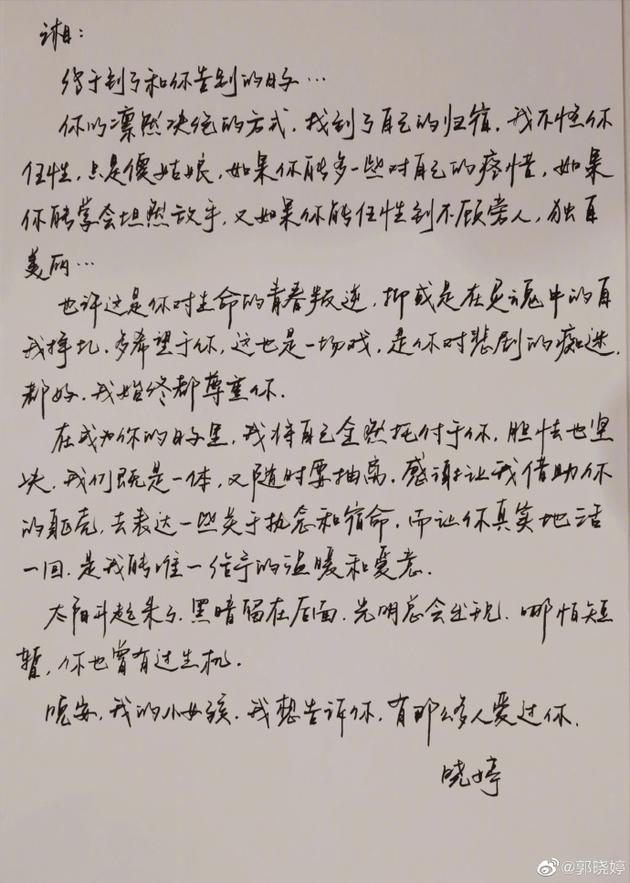 湘：
终于到了和你告别的日子…
你以凛然决绝的方式，找到了自己的归宿，我不怪你
任性，只是傻姑娘，如果你能多一些对自己的疼惜，如果
你能学会坦然放手，又如果你能任性到不顾旁人，独自
美丽…
也许这是你对生命的青春叛逆，抑或是在灵魂中的自
我挣扎，多希望于你，这也是一场戏，是你对悲剧的痴迷，
都好，我始终都尊重你.
在成为你的日子里，我将自己全然托付于你，胆怯也坚
决，我们既是一体，又随时要抽离，感谢让我借助你
的躯壳，去表达一些关于执念和宿命，而让你真实地活
一回，是我能唯一给予的温暖和爱意.
太阳升起来了，黑暗留在后面，光明总会出现，哪怕短
暂，你也曾有过生机.
晚安，我的小女孩，我想告诉你，有那么多人爱过你.
晓婷
@郭晓婷